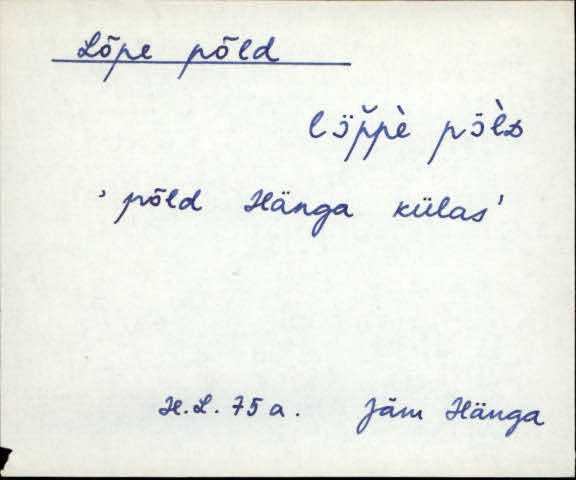 Lõpe põld
lö̆p̆p̀e pö̀lᴅ
' põld Hänga külas'
H.L. 75 a. Jäm Hänga